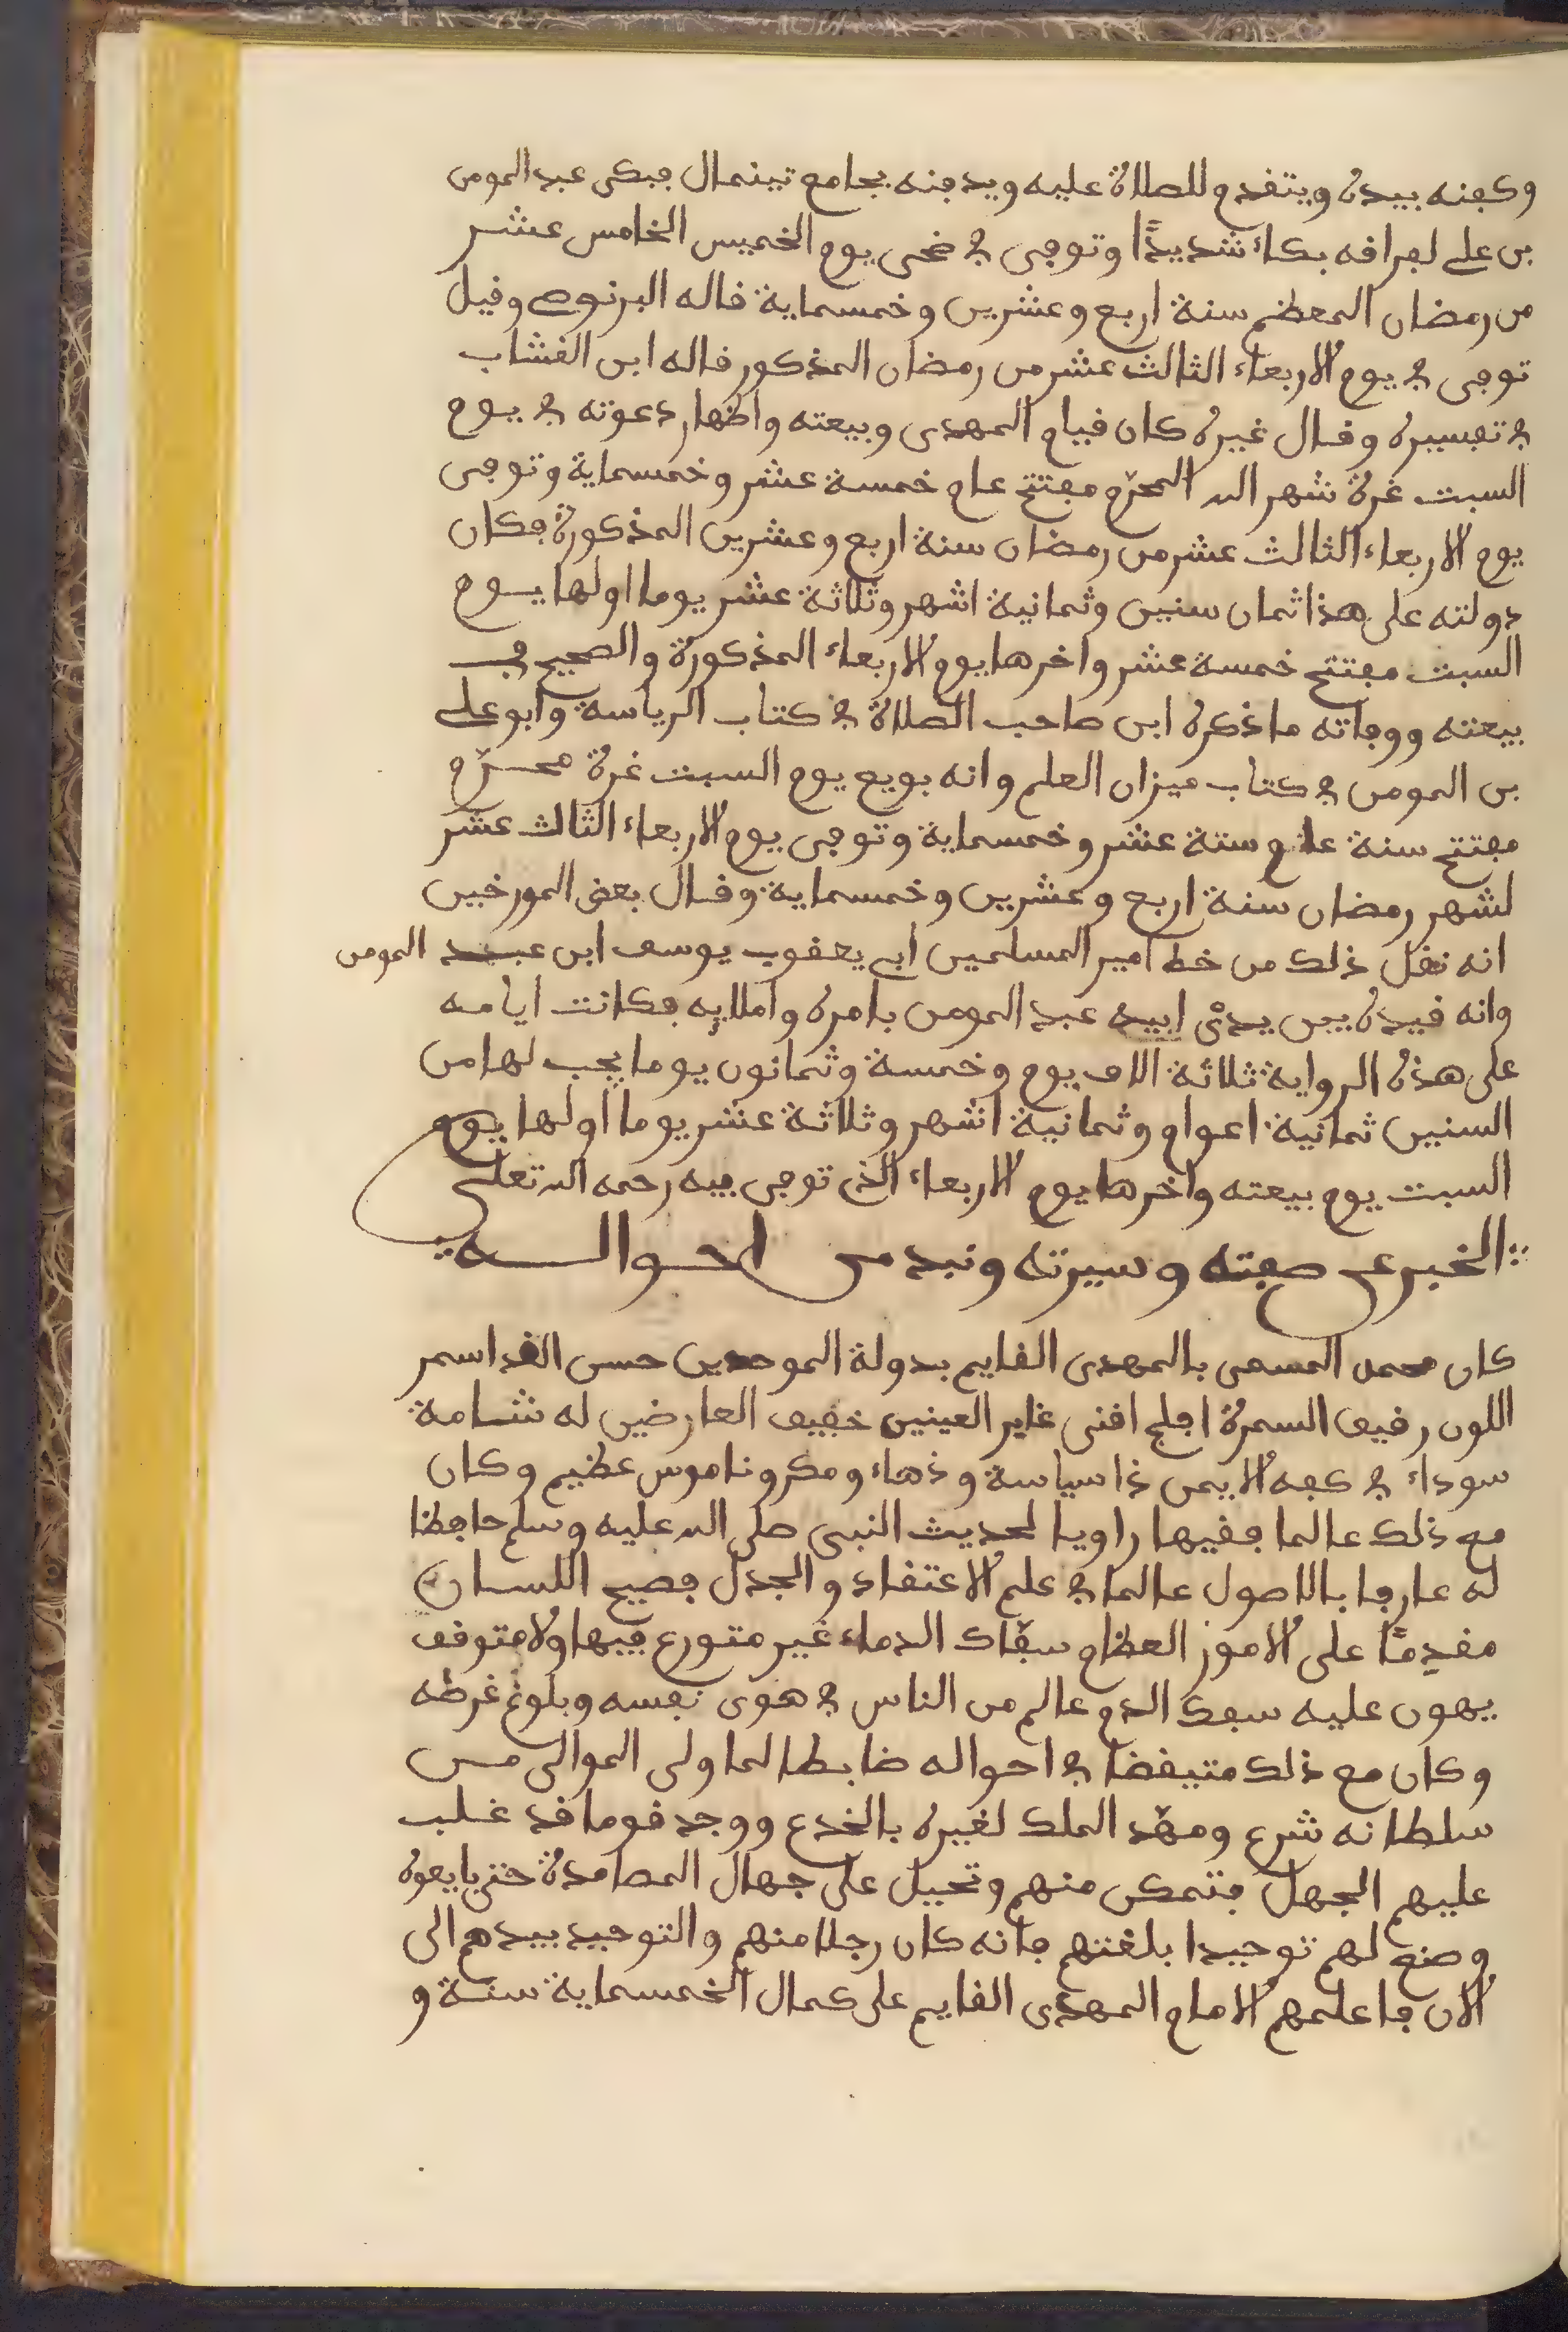 وكفنه بيده ويتقدم للصلاة عليه ويدفنه بجامع تينمال فبكى عبد المومن
بن علي لفراقه بكاء شديدًا وتوفى في ضحى يوم الخميس الخامس عشر
من رمضان المعظم سنة اربع وعشرين وخمسماية قاله البرنوصي وقيل
توفى في يوم الاربعاء الثالث عشر من رمضان المذكور قاله ابن الخشاب
في تفسيره وقال غيره كان قيام المهدى وبيعته واظهار دعوته في يوم
السبت غرة شهر الله المحرّم مفتتح عام خمسة عشر وخمسماية وتوفى
يوم الاربعاء الثالث عشر من رمضان سنة اربع وعشرين المذكورة فكان
دولته على هذا ثمان سنين وثمانية اشهر وثلاثة عشر يوما اولها يوم
السبت مفتتح خمسة عشر واخرها يوم الاربعاء المذكورة والصحيح في
بيعته ووفاته ما ذكره ابن صاحب الصلاة في كتاب الرياسة وابو علي
بن المومن في كتاب ميزان العلم وانه بويع يوم السبت غرة محرّم
مفتتح سنة عام ستة عشر وخمسماية وتوفى يوم الاربعاء الثالث عشر
لشهر رمضان سنة اربع وعشرين وخمسماية وقال بعض المورخين
انه نقل ذلك من خط امير المسلمين ابي يعقوب يوسف ابن عبد المومن
وانه قيده بين يدى ابيه عبد المومن بامره واملايه فكانت ايامه
على هذه الرواية ثلاثة الاف يوم وخمسة وثمانون يوما يجب لها من
السنين ثمانية اعوام وثمانية اشهر وثلاثة عشر يوما اولها يوم
السبت يوم بيعته واخرها يوم الاربعاء الذى توفى فيه رحمه الله تعلى
الخبر عن صفته وسيرته ونبد من احواله
كان محمد المسمى بالمهدى القايم بدولة الموحدين حسن القد اسمر
اللون رقيق السمرة افلج اقنى غاير العينين خفيف العارضين له شامة
سوداء في كفه الايمن ذا سياسة وذهاء ومكر وناموس عظيم وكان
مع ذلك عالما فقيها راويا لحديث النبى صلى الله عليه وسلم حافظا
له عارفا بالاصول عالما في علم الاعتقاد والجدل فصيح اللسان
مقدِمًا على الامور العظام سفّاك الدماء غير متورع فيها ولا متوقف
يهون عليه سفك الدم عالم من الناس في هوى نفسه وبلوغ غرظه
وكان مع ذلك متيقضا في احواله ضابطا لما ولى الموالى من
سلطانه شرع ومهّد الملك لغيره بالخدع ووجد قوما قد غلب
عليهم الجهل فتمكن منهم وتحيل على جهال المصامدة حتى بايعوه
وصنع لهم توحيدا بلغتهم فانه كان رجلا منهم والتوحيد بيدهم الى
الان فاعلمهم الامام المهدى القايم على كمال الخمسماية سنة و